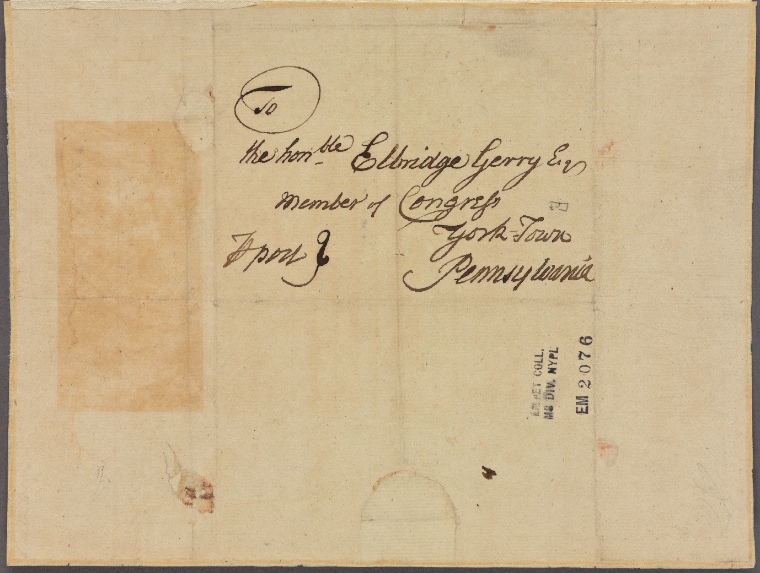 To
the honble Elbridge Gerry Esq
Member of Congress
York-Town
Pennsylvania
⅌ post
EMMET COLL.
MS DIV. NYPL
EM 2076